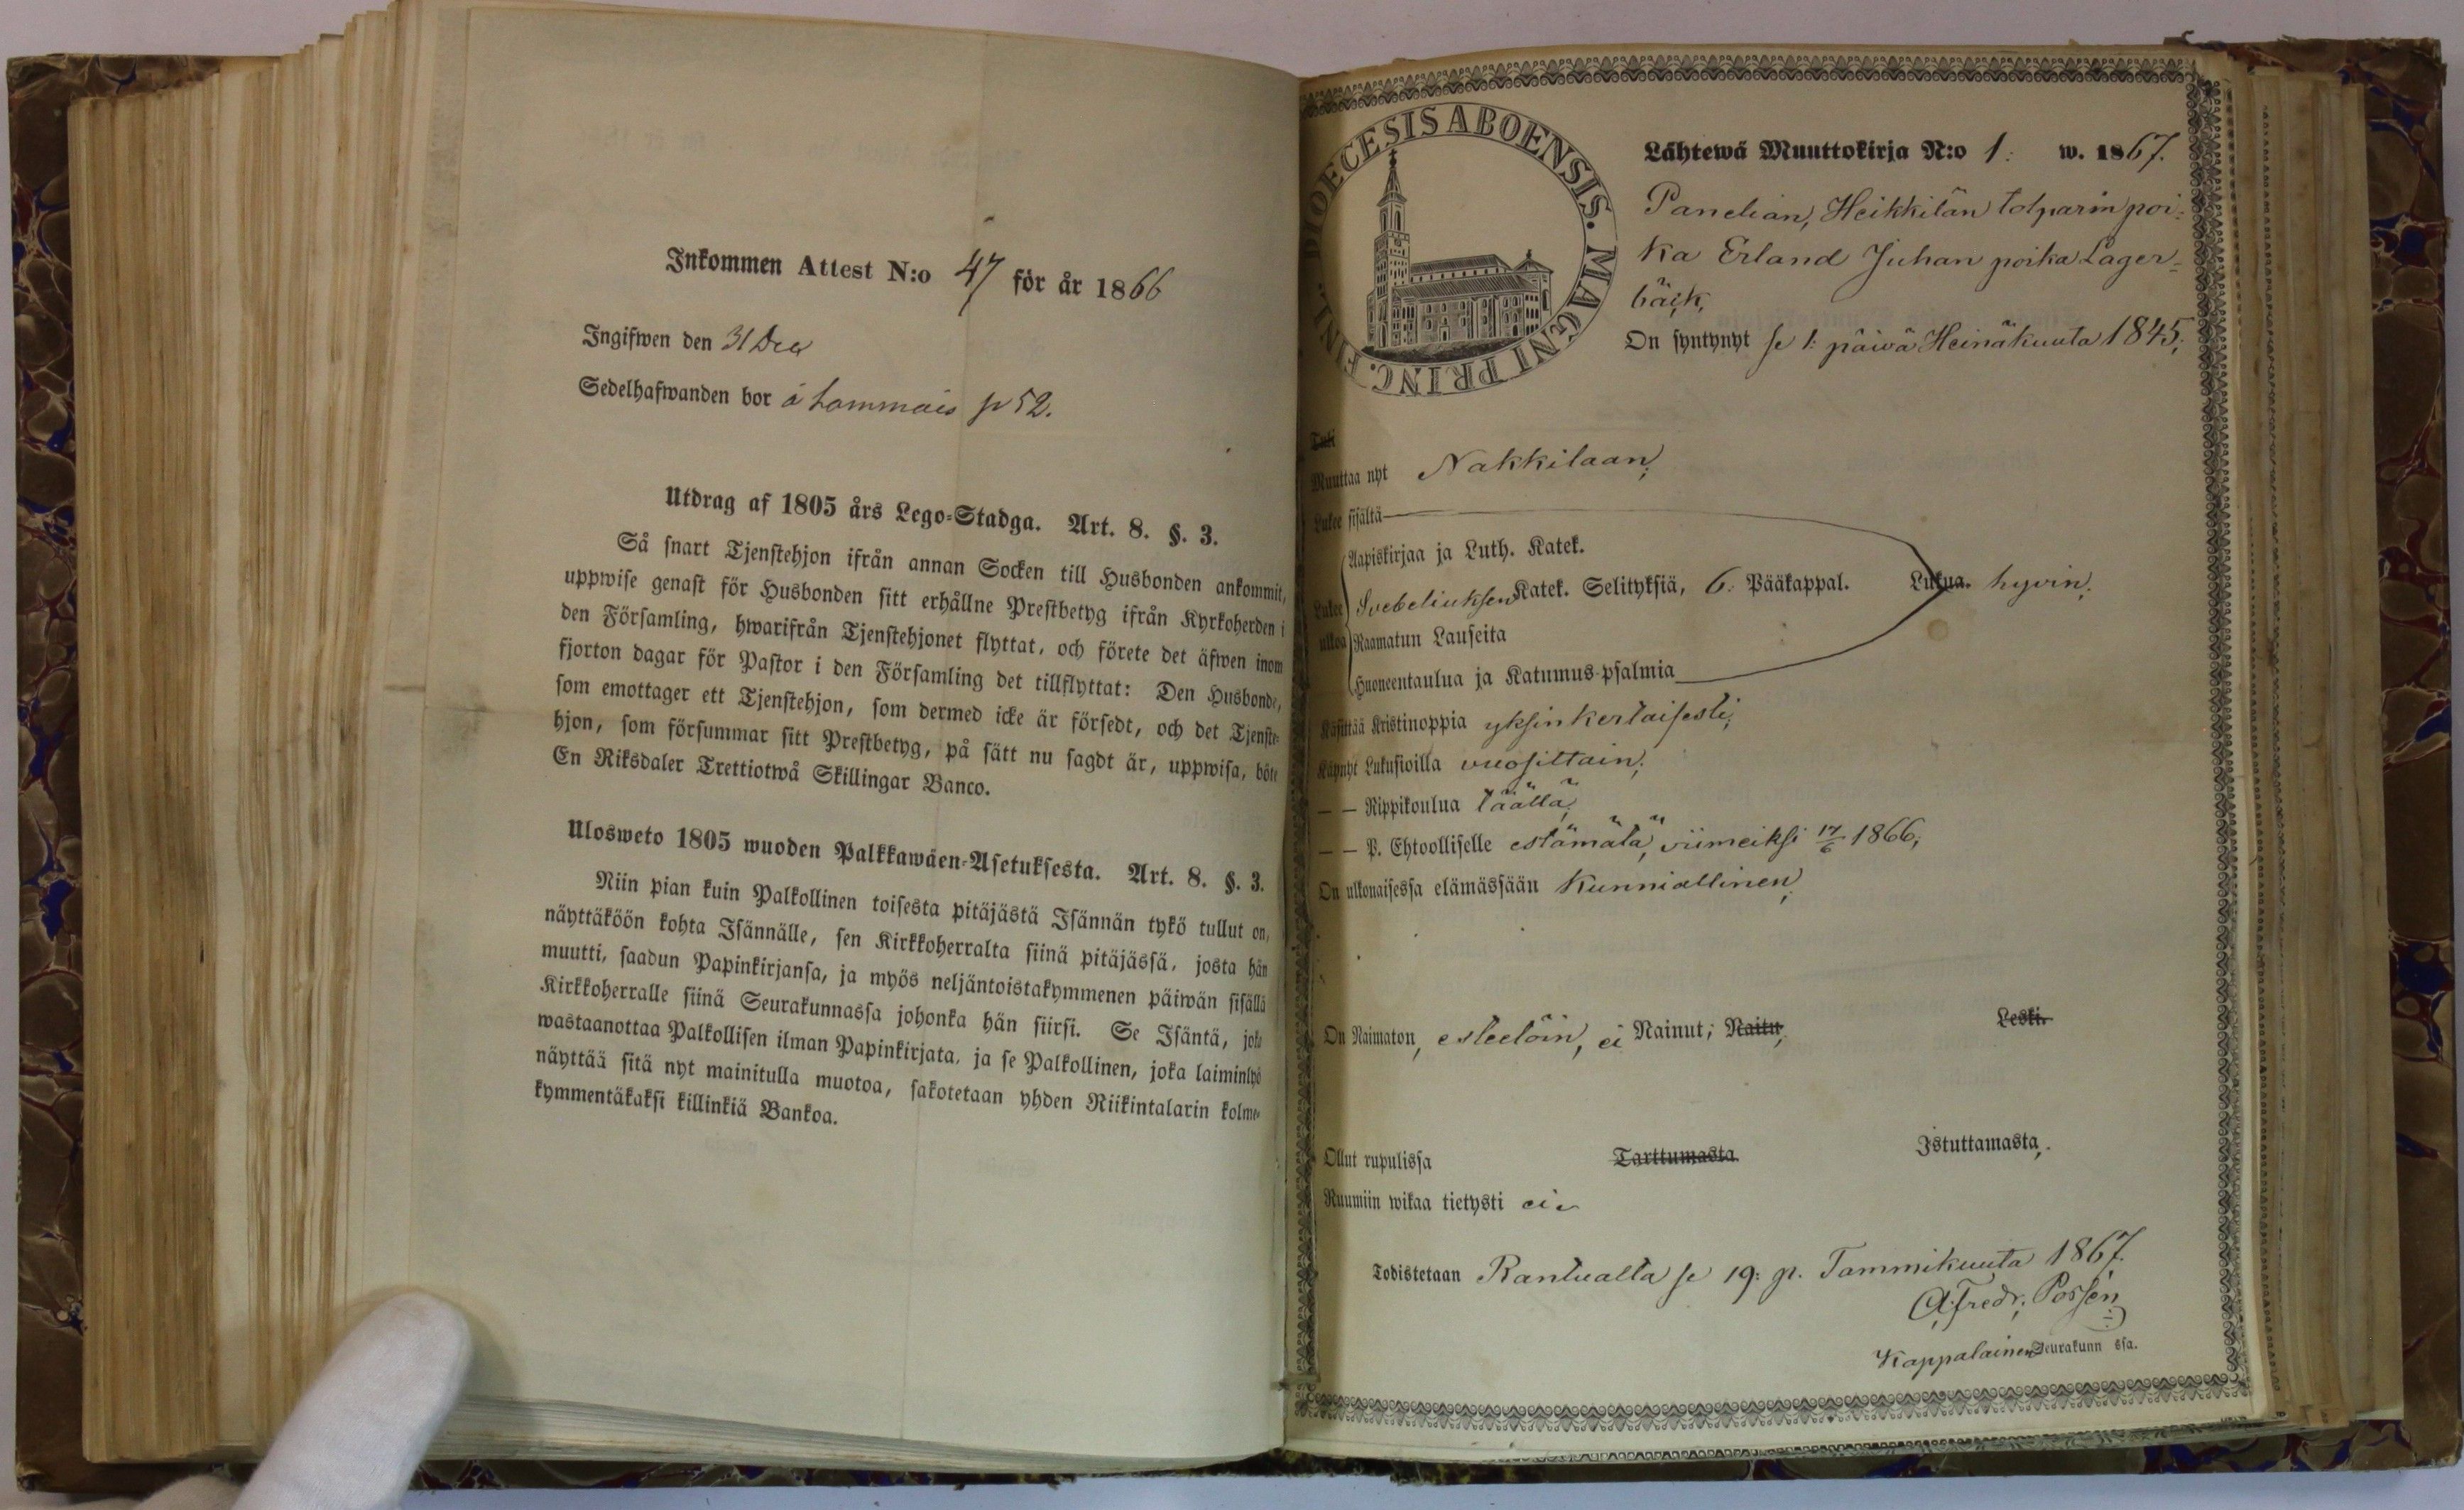 Inkommen Attest N:o 47 för år 1866
Ingifwen den 31 Dec
Sedelhafwanden bor å hammais p 52.
Utdrag af 1805 års Lego-Stadga. Art. 8. §. 3.
Så snart Tjenstehjon ifrån annan Socken till Husbonden ankommit,
uppwise genast för Husbonden sitt erhållne Prestbetyg ifrån Kyrkoherden i
den Församling, hwarifrån Tjenstehjonet flyttat, och förete det äfwen inom
fjorton dagar för Pastor i den Församling det tillflyttat: Den Husbonde,
som emottager ett Tjenstehjon, som dermed icke är försedt, och det Tjenste-
hjon, som försummar sitt Prestbetyg, på sätt nu sagdt är, uppwisa, böte
En Riksdaler Trettiotwå Skillingar Banco.
Ulosweto 1805 wuoden Palkkawäen-Asetuksesta. Art. 8. §. 3.
Niin pian kuin Palkollinen toisesta pitäjästä Isännän tykö tullut on,
näyttäköön kohta Isännälle, sen Kirkkoherralta siinä pitäjässä, josta hän
muutti, saadun Papinkirjansa, ja myös neljäntoistakymmenen päiwän sisällä
Kirkkoherralle siinä Seurakunnassa johonka hän siirsi. Se Isäntä, joka
wastaanottaa Palkollisen ilman Papinkirjata, ja se Palkollinen, joka laiminlyö
näyttää sitä nyt mainitulla muotoa, sakotetaan yhden Riikintalarin kolme-
kymmentäkaksi killinkiä Bankoa.
DIOECESIS ABOENSIS. MAGNI PRINC. FINL.
Lähtewä Muuttokirja N:o 1: w. 1867.
Panelian, Heikkilän torparin poi-
ka Erland Juhan poika Lager-
bäck,
On syntynyt se 1: päivä Heinäkuuta 1845;
Tuli
Muuttaa nyt Nakkilaan;
Lukee sisältä
Aapiskirjaa ja Luth. Katek.
Lukee Svebeliuksen Katek. Selityksiä, 6: Pääkappal. Lukua. hyvin;
ulkoa Raamatun Lauseita
Huoneentaulua ja Katumus-psalmia
Käsittää Kristinoppia yksinkertaisesti;
Käynyt Lukusioilla vuosittain;
— — Rippikoulua täällä;
— — P. Ehtoolliselle estämätä, viimeiksi 17/6 1866;
On ulkonaisessa elämässään Kunniallinen;
On Naimaton, esteetöin, ei Nainut; Naitu, Leski.
Ollut rupulissa Tarttumasta Istuttamasta.
Ruumiin wikaa tietysti ei
Todistetaan Rantualta se 19: p. Tammikuuta 1867.
A: Fredr: Possén
Kappalainen Seurakunn ssa.